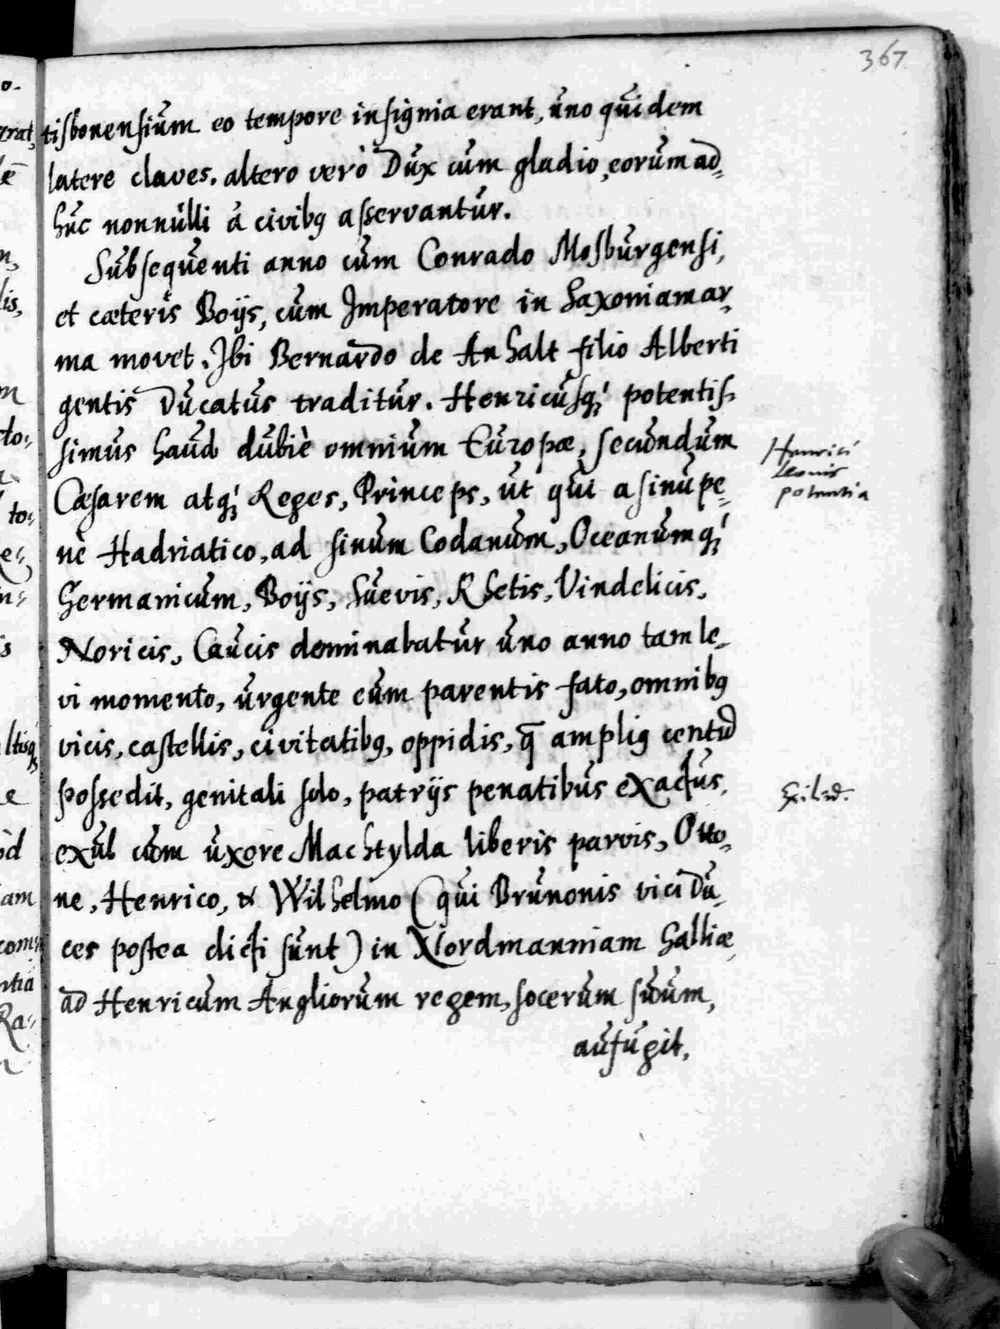 367
tisbonensium eo tempore insignia erant, uno quidem
latere claves. altero verò Dux cum gladio, eorum ad=
huc nonnulli à civibꝰ asservantur.
Subsequenti anno cum Conrado Mosburgensi,
et cæteris Boijs, cum Imperatore in Saxoniam ar=
ma movet. Ibi Bernardo de Anhalt filio Alberti
gentis Ducatus traditur. Henricusqꝫ potentis=
simus haud dubiè omnium Europæ, secundum
Cæsarem atqꝫ Reges, Princeps, ut qui a sinu pe=
nè Hadriatico, ad sinum Codanum, Oceanumqꝫ
Germanicum, Boijs, Suevis, Rhetis, Vindelicis,
Noricis, Caucis dominabatur uno anno tam le=
vi momento, urgente eum parentis fato, omnibꝰ
vicis, castellis, civitatibꝰ, oppidis, q̄ ampliꝰ centū
possedit, genitali solo, patrijs penatibus exactus,
exul cum uxore Machtylda liberis parvis, Otto=
ne, Henrico, & Wilhelmo (qui Brunonis vici Du=
ces postea dicti sunt) in Nordmanniam Galliæ
ad Henricum Angliorum regem, socerum suum,
aufugit,
Henrici
Leonis
potentia
Exiliū.